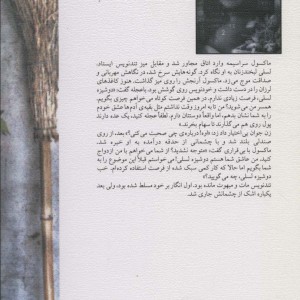 ماکسول سراسیمه وارد اتاق مجاور شد و مقابل میز تندنویس ایستاد.
لسلی لبخندزنان به او نگاه کرد. گونه‌هایش سرخ شد. در نگاهش مهربانی و
صداقت موج می‌زد. ماکسول آرنجش را روی میز گذاشت. هنوز کاغذهای
لرزان را در دست داشت و خودنویس روی گوشش بود. باعجله گفت: «دوشیزه
لسلی، فرصت زیادی ندارم. در همین فرصت کوتاه می‌خواهم چیزی بگویم.
همسر من می‌شوید؟ من تا به امروز وقت نداشتم مثل بقیه‌ی آدم‌ها عشق خودم
را به شما نشان بدهم، اما واقعاً دوستتان دارم. لطفاً عجله کنید، یک عده دارند
پول روی هم می‌گذارند تا سهام بخرند.»
زن جوان بی‌اختیار داد زد: «اوه! درباره‌ی چی صحبت می‌کنی؟» بعد، از روی
صندلی بلند شد و با چشمانی از حدقه درآمده به او خیره شد.
ماکسول با بی‌قراری گفت: «متوجه نشدید؟ از شما می‌خواهم با من ازدواج
کنید. من عاشق شما هستم دوشیزه لسلی! می‌خواستم قبلاً این موضوع را به
شما بگویم اما حالا که کار کمی سبک شده از فرصت استفاده کرده‌ام. خب
دوشیزه لسلی، چه می‌گویید؟»
تندنویس مات و مبهوت مانده بود. اول انگار بر خود مسلط شده بود، ولی بعد
یکباره اشک از چشمانش جاری شد.